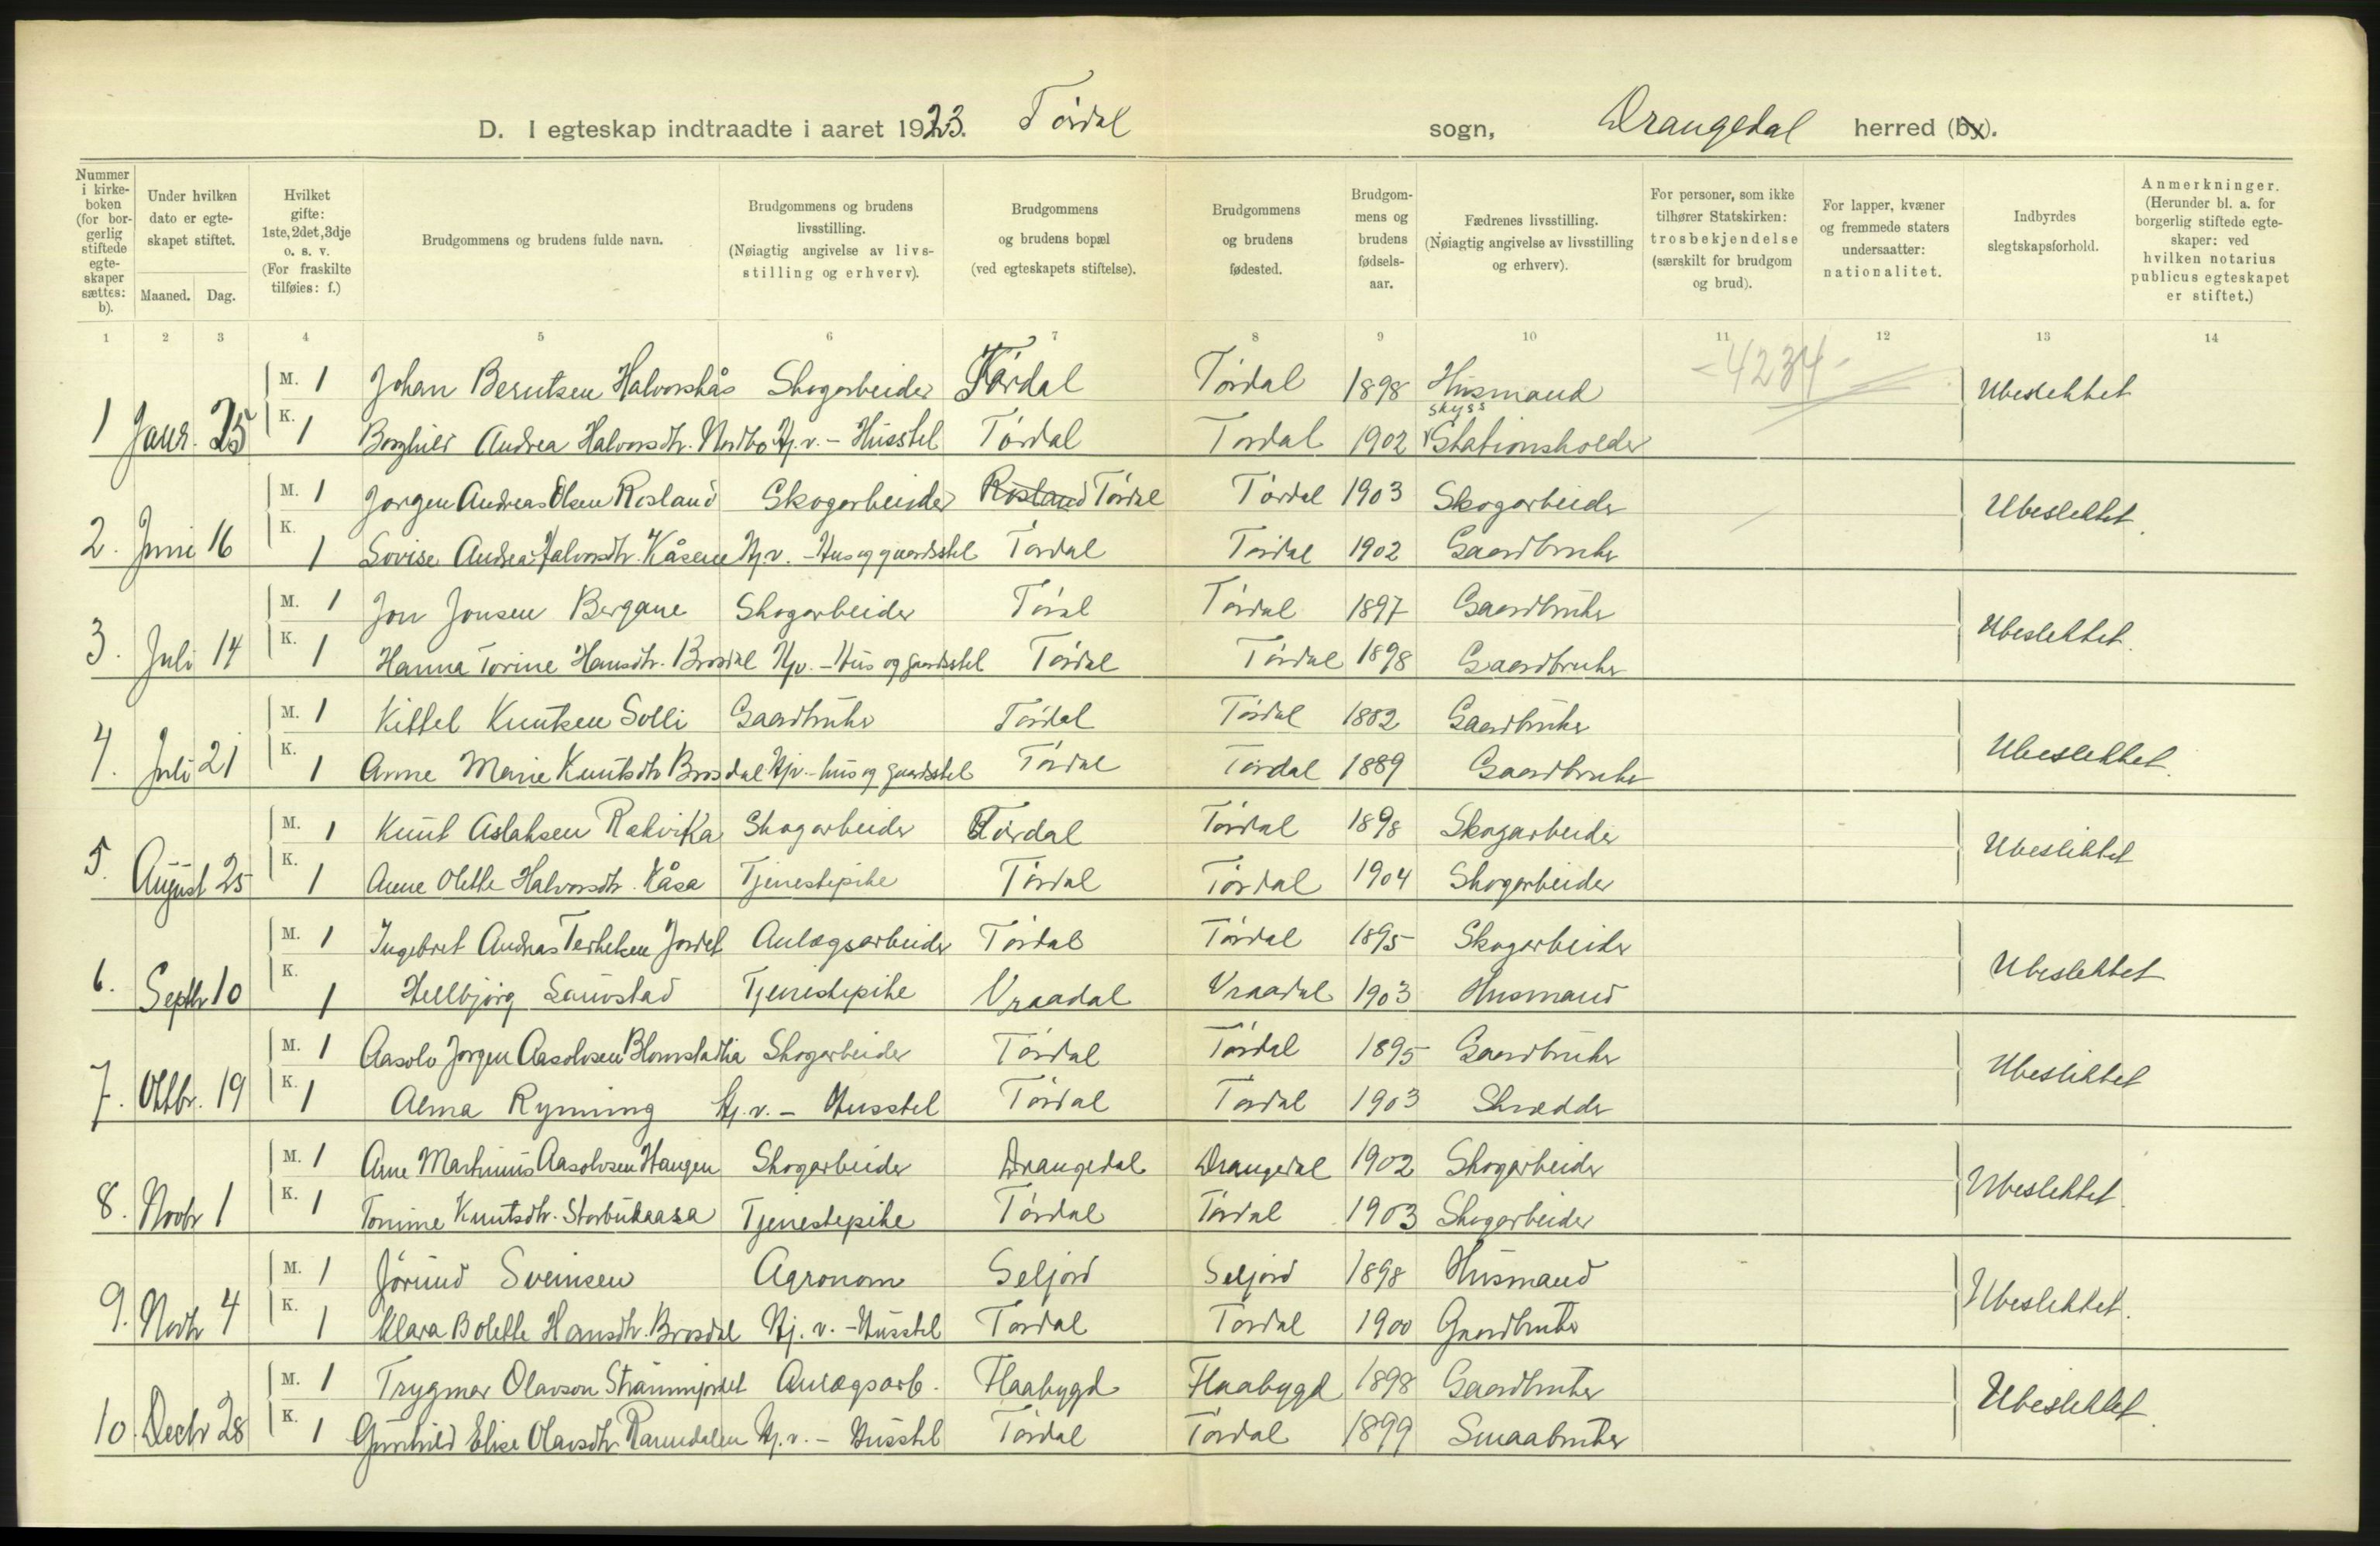 D. I egteskap indtraadte i aaret 1923. Tørdal sogn, Drangedal herred (by).
Nummer i kirkeboken (for borgerlig stiftede egteskaper sættes: b).
Under hvilken dato er egteskapet stiftet.
Maaned. Dag.
Hvilket gifte: 1ste, 2det, 3dje o. s. v. (For fraskilte tilføies: f.)
Brudgommens og brudens fulde navn.
Brudgommens og brudens livsstilling. (Nøiagtig angivelse av livsstilling og erhverv).
Brudgommens og brudens bopæl (ved egteskapets stiftelse).
Brudgommens og brudens fødested.
Brudgommens og brudens fødselsaar.
Fædrenes livsstilling. (Nøiagtig angivelse av livsstilling og erhverv).
For personer, som ikke tilhører Statskirken: trosbekjendelse (særskilt for brudgom og brud).
For lapper, kvæner og fremmede staters undersaatter: nationalitet.
Indbyrdes slegtskapsforhold.
Anmerkninger. (Herunder bl. a. for borgerlig stiftede egteskaper: ved hvilken notarius publicus egteskapet er stiftet.)
1 2 3 4 5 6 7 8 9 10 11 12 13 14
-4234-
M. 1 Johan Berntsen Halvorskås Skogarbeider Tørdal Tørdal 1898 Husmand Ubeslektet
1 Janr. 25 K. 1 Borghild Andrea Halvorsdtr. Nordbø Hj.v. - Husstel Tørdal Tørdal 1902 skyss Stationsholder
M. 1 Jørgen Andreas Olsen Rosland Skogarbeider Rosland Tørdal Tørdal 1903 Skogarbeider Ubeslektet.
2. Juni 16 K. 1 Lovise Andrea Halvorsdtr. Kåsene Hj.v. - Hus og gaardsstel Tørdal Tørdal 1902 Gaardbruker
M. 1 Jon Jonsen Bergane Skogarbeider Tørdal Tørdal 1897 Gaardbruker Ubeslektet.
3. Juli 14 K. 1 Hanna Torine Hansdtr. Brosdal Hjv. - Hus og gaardsstel Tørdal Tørdal 1898 Gaardbruker
M. 1 Kittel Knutsen Solli Gaardbruker Tørdal Tørdal 1882 Gaardbruker Ubeslektet.
4. Juli 21 K. 1 Anne Marie Knutsdtr Brosdal Hjv. - hus og gaardsstel Tørdal Tørdal 1889 Gaardbruker
M. 1 Knut Aslaksen Rakvika Skogarbeider Tørdal Tørdal 1898 Skogarbeider Ubeslektet
5. August 25 K. 1 Anne Olette Halvorsdtr. Kåsa Tjenestepike Tørdal Tørdal 1904 Skogarbeider
M. 1 Ingebret Andreas Terkelsen Jordet Anlægsarbeider Tørdal Tørdal 1895 Skogarbeider Ubeslektet
6. Septbr 10 K. 1 Hellbjørg Vraadal Tjenestepike Vraadal 1903 Husmand
M. 1 Aasolv Jørgen Aasolvsen Blomstadlia Skogarbeider Tørdal Tørdal 1895 Gaardbruker Ubeslektet
7. Oktbr. 19 K. 1 Alma Rynning Hj.v. - Husstel Tørdal Tørdal 1903 Skrædder
M. 1 Arne Martinius Aasolvsen Haugen Skogarbeider Drangedal Drangedal 1902 Skogarbeider Ubeslektet.
8. Novbr 1 K. 1 Tomine Knutsdtr. Storbukaasa Tjenestepike Tørdal Tørdal 1903 Skogarbeider
M. 1 Jörund Sveinsen Agronom Seljord Seljord 1898 Husmand Ubeslektet.
9. Novbr 4 K. 1 Klara Bolette Hansdtr. Brosdal Hj. v. - Husstel Tørdal Tørdal 1900 Gaardbruker
M. 1 Trygmar Olavson Strammjordet Anlægsarb. Flaabygd Flaabygd 1898 Gaardbruker Ubeslektet.
10. Decbr 28 K. 1 Gunhild Elise Olavsdtr. Ramndalen Hj.v. - Husstel Tørdal Tørdal 1899 Smaabruker